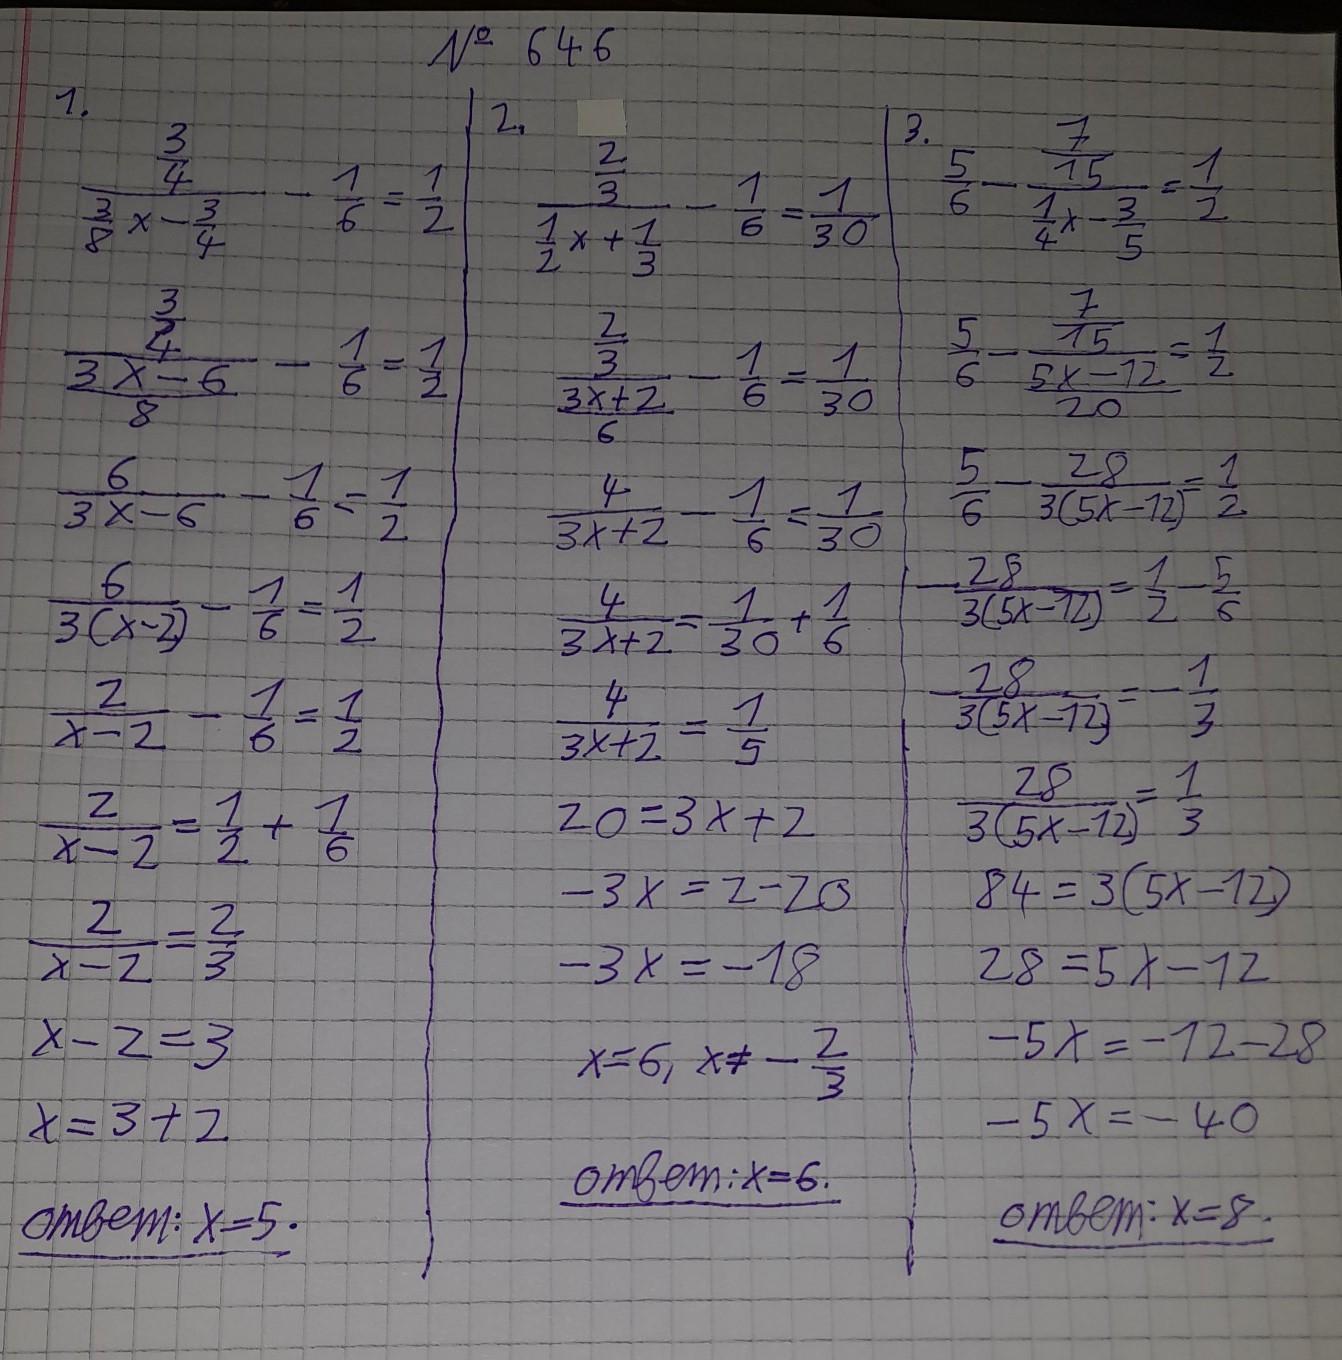 № 646
1.
(3/4)/(3/8 x - 3/4) - 1/6 = 1/2
(3/4)/((3x-6)/8) - 1/6 = 1/2
6/(3x-6) - 1/6 = 1/2
6/(3(x-2)) - 1/6 = 1/2
2/(x-2) - 1/6 = 1/2
2/(x-2) = 1/2 + 1/6
2/(x-2) = 2/3
x-2=3
x=3+2
ответ: x=5.
2.
(2/3)/(1/2 x + 1/3) - 1/6 = 1/30
(2/3)/((3x+2)/6) - 1/6 = 1/30
4/(3x+2) - 1/6 = 1/30
4/(3x+2) = 1/30 + 1/6
4/(3x+2) = 1/5
20=3x+2
-3x=2-20
-3x=-18
x=6, x≠-2/3
ответ: x=6.
3.
5/6 - (7/15)/(1/4 x - 3/5) = 1/2
5/6 - (7/15)/((5x-12)/20) = 1/2
5/6 - 28/(3(5x-12)) = 1/2
-28/(3(5x-12)) = 1/2 - 5/6
-28/(3(5x-12)) = -1/3
28/(3(5x-12)) = 1/3
84=3(5x-12)
28=5x-12
-5x=-12-28
-5x=-40
ответ: x=8.